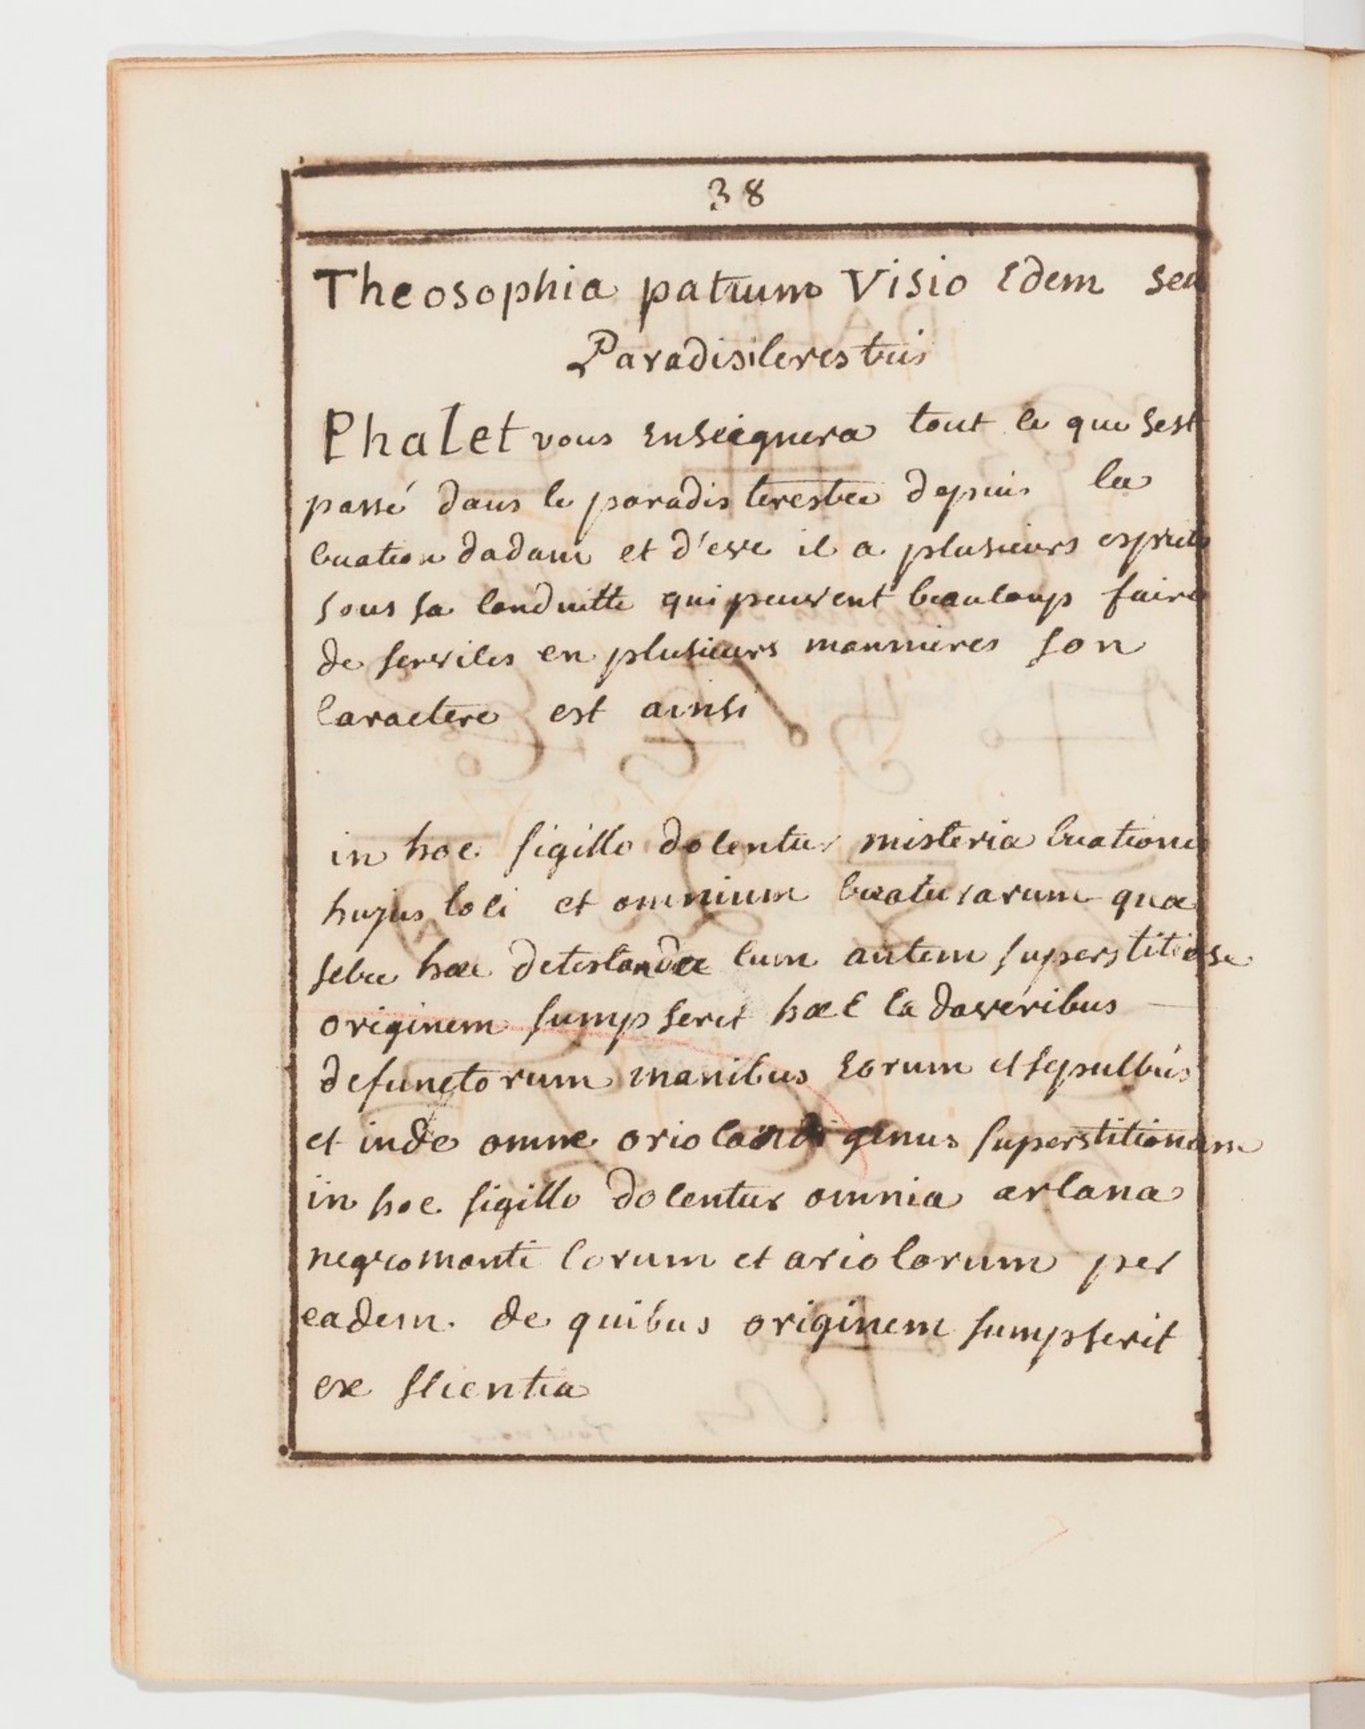 38
Theosophia patrum Visio Edem seu
Paradisi terestris
Phalet vous enseignera tout ce qui sest
passé dans le paradis terestre depuis la
creation dadam et d'eve il a plusieurs esprits
sous sa conduitte qui peuvent beaucoup faire
de services en plusieurs mannieres son
caractere est ainsi
in hoc sigillo docentur misteria creationis
hujus loci et omnium creaturarum quæ
hæ detestandæ cum autem superstitiose
originem sumpserit hæc cadaveribus
defunctorum manibus eorum et sepulcris
et inde omne ariolandi genus superstitionum
in hoc sigillo docentur omnia arcana
negromanticorum et ariolorum per
eadem de quibus originem sumpserit
ex scientia